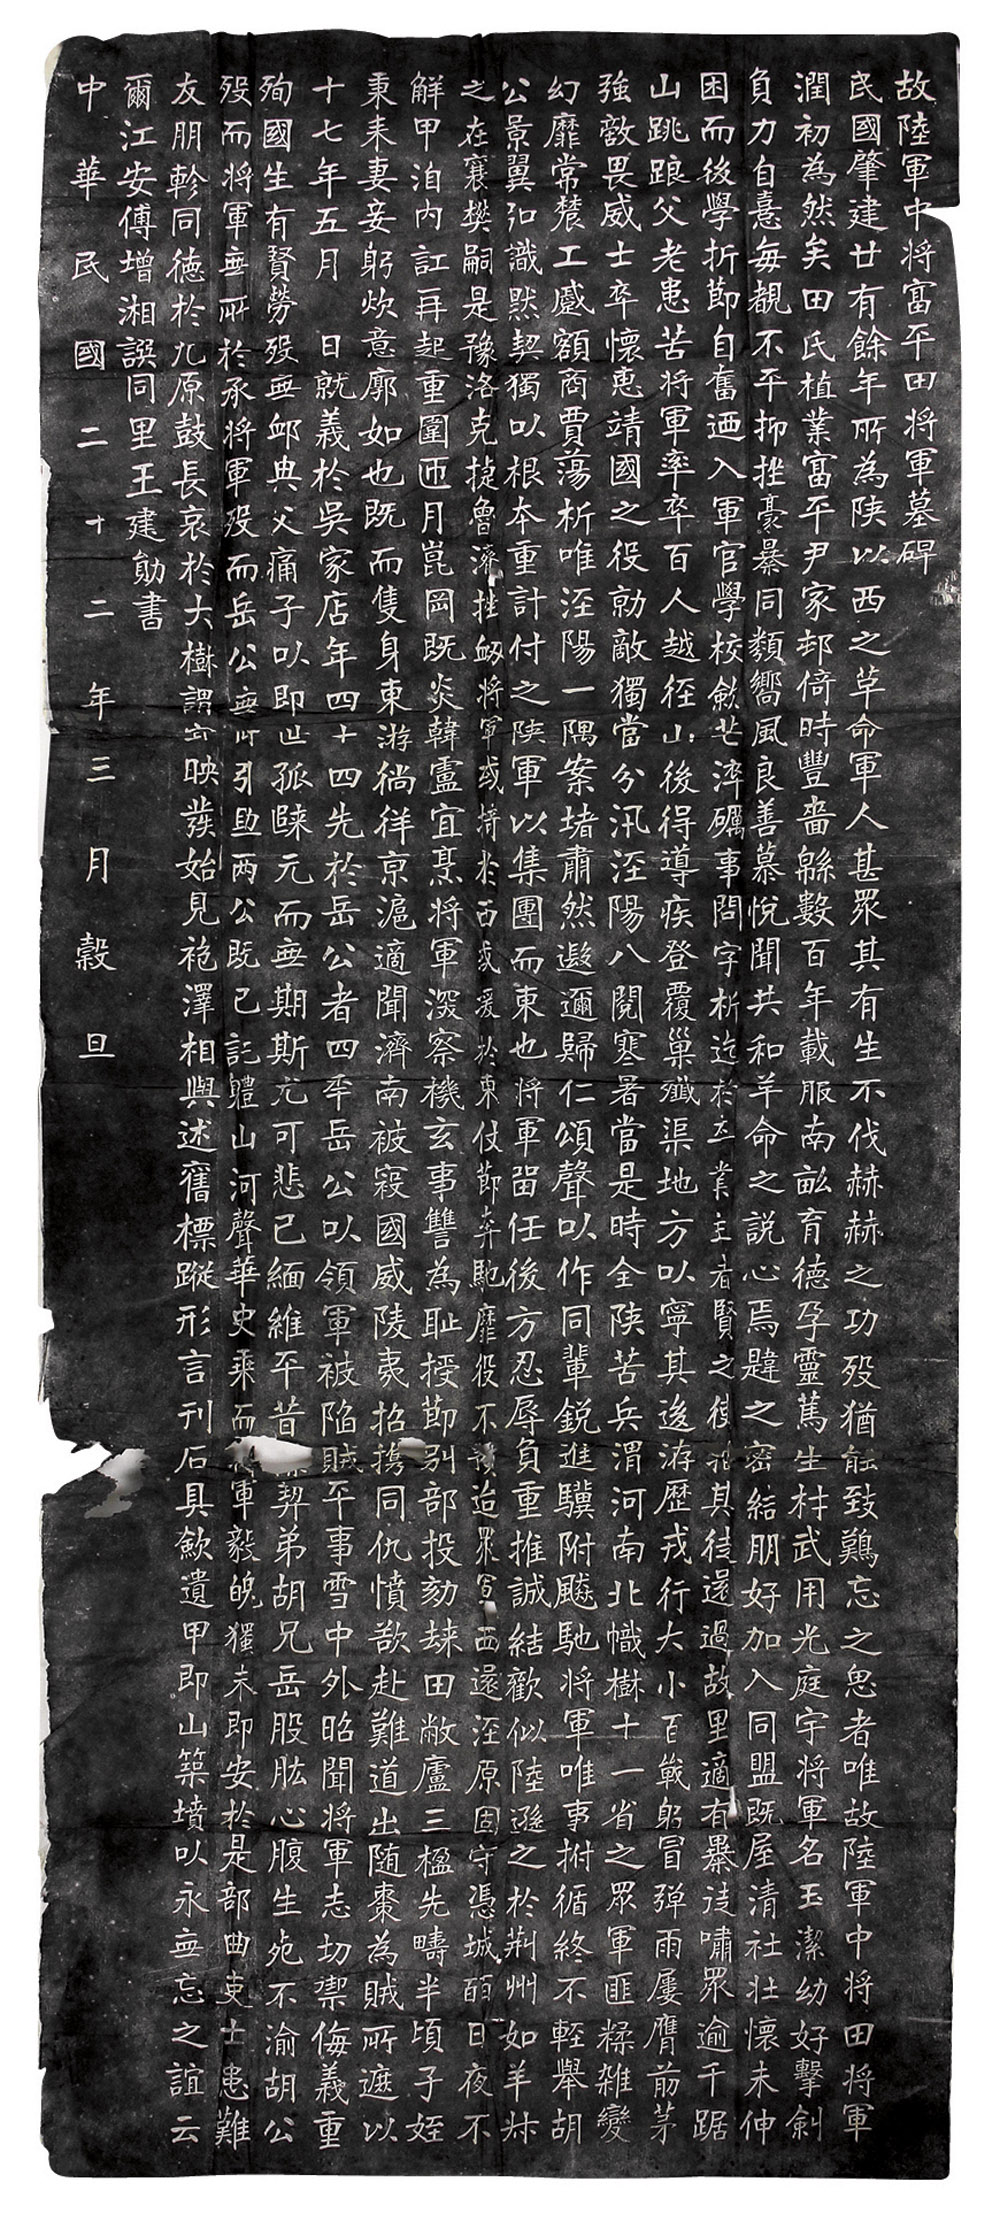 故陸軍中将富平田将軍墓碑
民國肇建廿有餘年所為陕以西之革命軍人甚眾其有生不伐赫赫之功殁猶能致難忘之思者唯故陸軍中将田将軍
潤初為然矣田氏植業富平尹家邨倚時豐嗇緜數百年載服南畝育德孕靈篤生材武用光庭宇将軍名玉潔幼好擊劍
負力自憙每覩不平抑挫豪暴同類嚮風良善慕悅聞共和革命之説心焉韙之密結朋好加入同盟既屋清社壮懷未伸
困而後學折節自奮迺入軍官學校斂芒淬礪事問字析迄於卒業主者賢之徒還過故里適有暴徒嘯眾逾千踞
山跳踉父老患苦将軍率卒百人越徑山後得導疾登覆巢殲渠地方以寧其後游歷戎行大小百戰躬冒彈雨屢膺前茅
強敵畏威士卒懷惠靖國之役勍敵獨當分汛涇陽八閱寒暑當是時全陕苦兵渭河南北幟樹十一省之眾軍匪糅雜變
幻靡常農工蹙額商賈蕩析唯涇陽一隅案堵肅然遐邇歸仁頌聲以作同輩銳進驥附飇馳将軍唯事拊循終不輕舉胡
公景翼弘識默契獨以根本重計付之陕軍以集團而東也将軍留任後方忍辱負重推誠結歡似陸遜之於荆州如羊牂
之在襄樊嗣是豫洛克捷魯濟挫衂将軍或掎於西或爰於東仗節奔馳靡役不迨眾軍西還涇原固守憑城百日夜不
解甲洎内訌再起重圍匝月崑岡既炎韓盧宜烹将軍深察機玄事讐為耻授節别部投劾歸田敝廬三楹先疇半頃子姪
秉耒妻妾躬炊意廓如也既而隻身東游徜徉京滬適聞濟南被寇國威陵夷招携同仇憤欲赴難道出随棗為賊所遮以
十七年五月　日就義於吳家店年四十四先於岳公者四年岳公以領軍被陷賊平事雪中外昭聞将軍志切禦侮義重
殉國生有賢勞殁無邮典父痛子以即世孤踈元而無期斯尤可悲已緬維平昔契弟胡兄岳股肱心腹生死不渝胡公
殁而将軍無所於承将軍殁而岳公無所引助两公既已託軆山河聲華史乘而将軍毅魄獨未即安於是部曲吏士患難
友朋軫同德於九原鼓長哀於大樹謂映發始見袍澤相與述舊標蹤形言刊石具歛遺甲即山築墳以永無忘之誼云
爾江安傅增湘譔同里王建勛書
中華民國二十二年三月穀旦